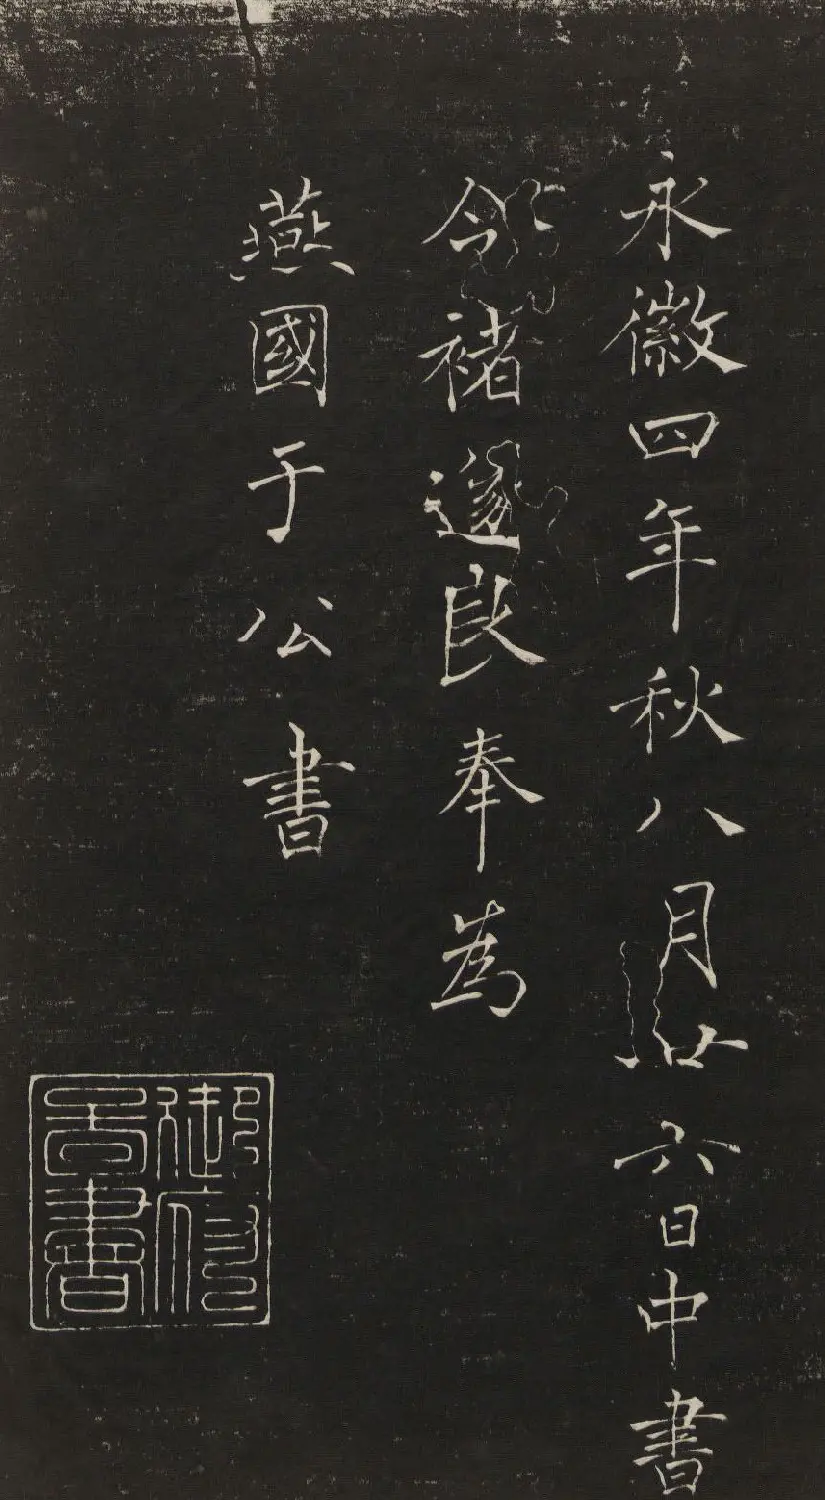 永徽四年秋八月廿六日中書
令褚遂良奉為
燕國于公書